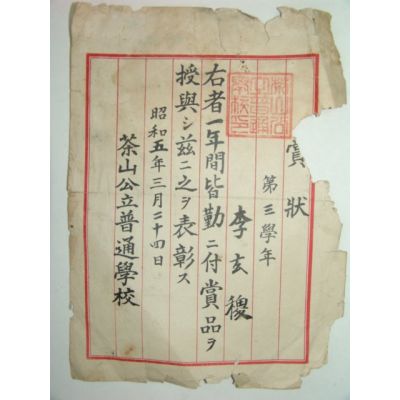 賞狀
第三學年
李玄稷
右者一年間皆勤ニ付賞品ヲ
授與シ茲ニ之ヲ表彰ス
昭和五年三月二十四日
茶山公立普通學校